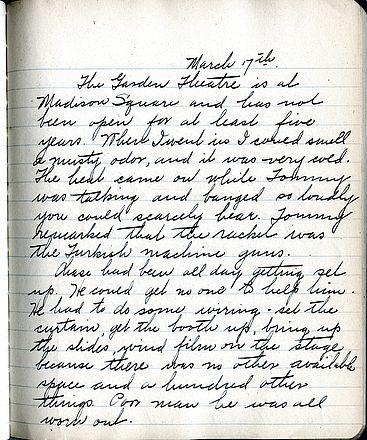 March 17th.
The Garden Theatre is at
Madison Square and has not
been open for at least five
years. When I went in I could smell
a musty odor, and it was very cold.
The heat came out while Tommy
was talking and banged so loudly
you could scarcely hear. Tommy
remarked that the racket was
the Turkish machine guns.
Chase had been all day getting set
up. He could get no one to help him.
He had to do some wiring - set the
curtain, get the booth up, bring up
the slides, wind film on the stage
because there was no other available
space and a hundred other
things. Poor man he was all
worn out.